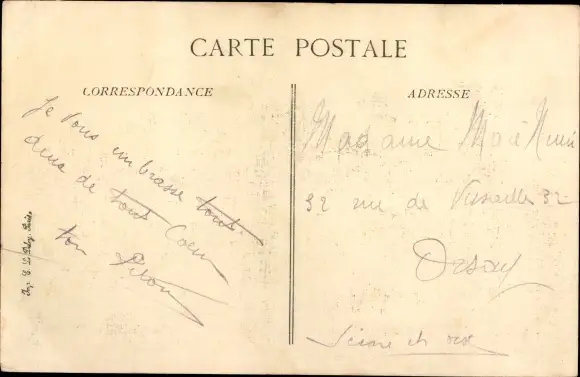 CARTE POSTALE
CORRESPONDANCE
Je vous embrasse tous
deux de tout Coeur
ton
ADRESSE
Madame
32 rue de Versailles 32
Orsay
Seine et oise